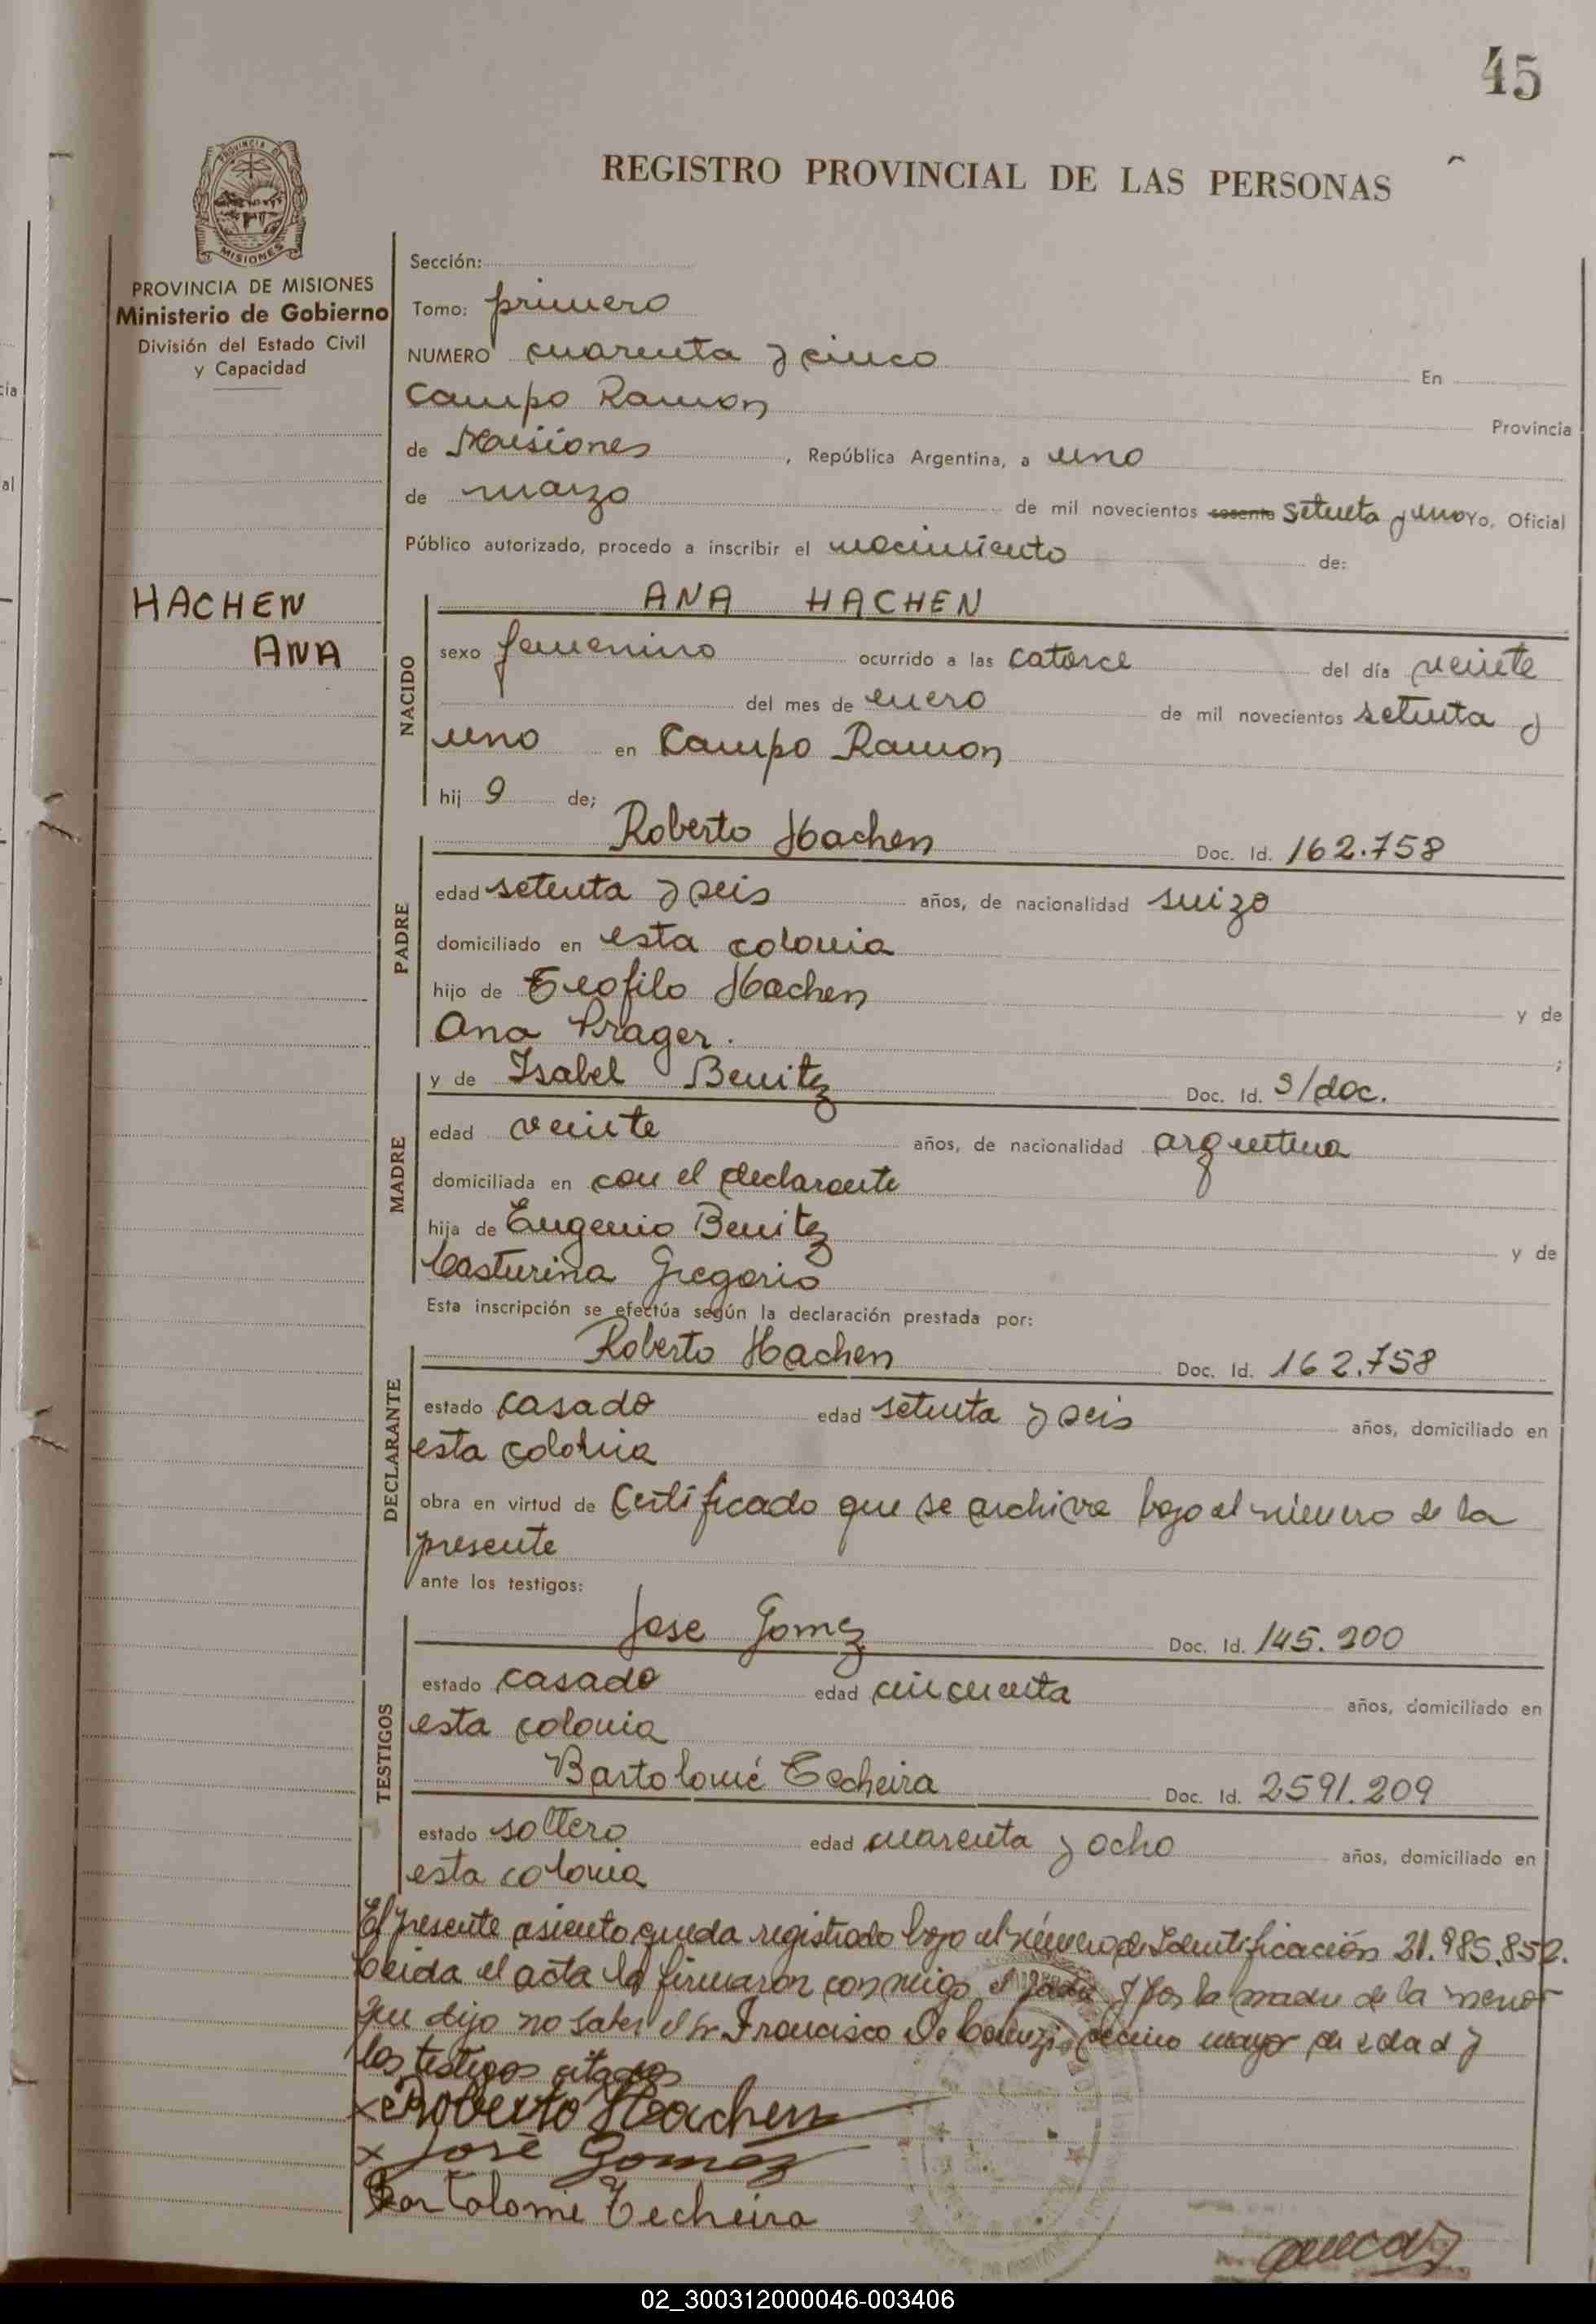 45
REGISTRO PROVINCIAL DE LAS PERSONAS
PROVINCIA DE MISIONES
PROVINCIA DE MISIONES
Ministerio de Gobierno
División del Estado Civil
y Capacidad
Sección:
Tomo: primero
NUMERO cuarenta y cinco En
Campo Ramon Provincia
de Misiones, República Argentina, a uno
de marzo de mil novecientos sesenta setenta y uno Yo, Oficial
Público autorizado, procedo a inscribir el nacimiento de:
HACHEN
ANA
NACIDO
ANA HACHEN
sexo femenino ocurrido a las catorce del día veinte
del mes de enero de mil novecientos setenta y
uno en Campo Ramon
hij a de;
PADRE
Roberto Hachen Doc. Id. 162.758
edad setenta y seis años, de nacionalidad suizo
domiciliado en esta colonia
hijo de Teofilo Hachen y de
Ana Prager. ;
MADRE
y de Isabel Benitez Doc. Id. S/doc.
edad veinte años, de nacionalidad argentina
domiciliada en con el declarante
hija de Eugenio Benitez y de
Casturina Gregorio
Esta inscripción se efectúa según la declaración prestada por:
DECLARANTE
Roberto Hachen Doc. Id. 162.758
estado casado edad setenta y seis años, domiciliado en
esta colonia
obra en virtud de Certificado que se archiva bajo el número de la
presente
ante los testigos:
TESTIGOS
Jose Gomez Doc. Id. 145.200
estado casado edad cincuenta años, domiciliado en
esta colonia
Bartolomé Techeira Doc. Id. 2591.209
estado soltero edad cuarenta y ocho años, domiciliado en
esta colonia
El presente asiento queda registrado bajo el número de Identificación 21.985.852.
Leida el acta la firmaron conmigo el padre y por la madre de la menor
que dijo no saber el sr Francisco De vecino mayor de edad y
los testigos citados
x Roberto Hachen
x José Gomez
Bartolome Techeira
02_300312000046-003406